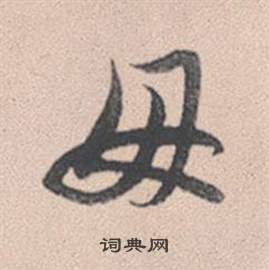 毋
词典网